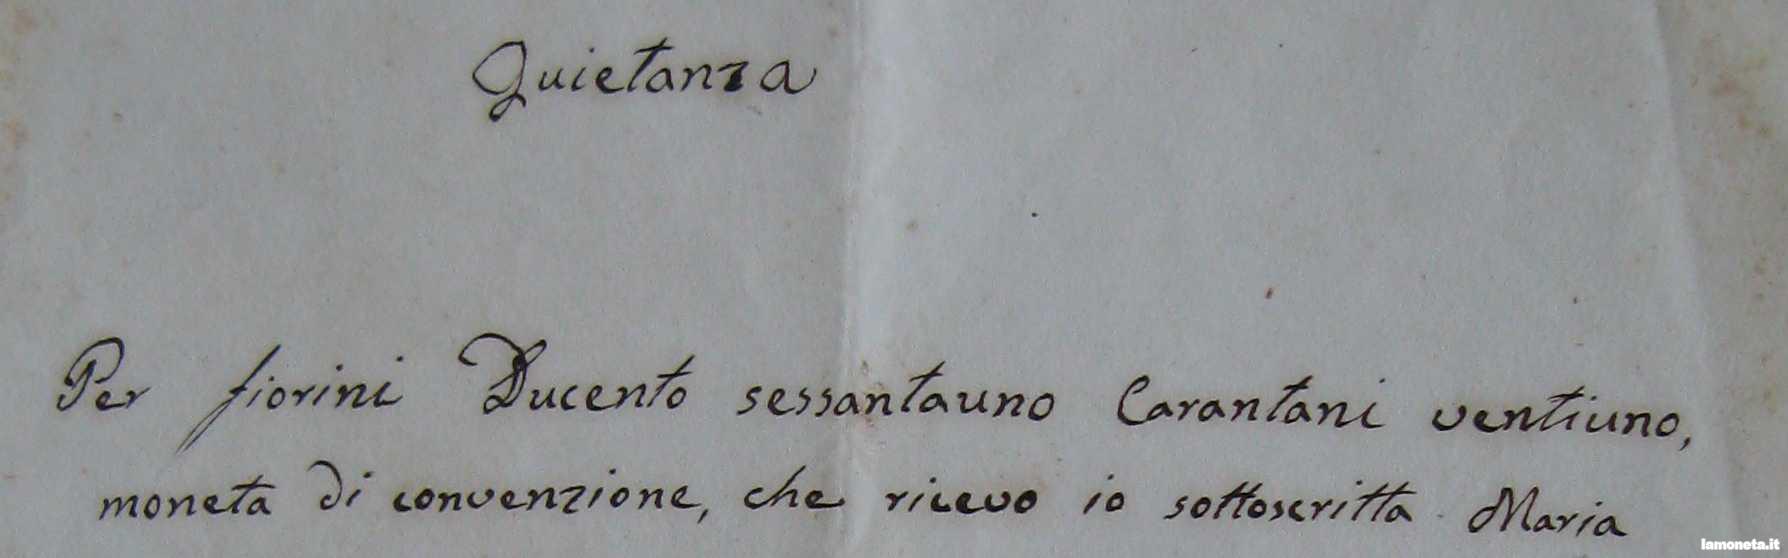 Quietanza
Per fiorini Ducento sessantauno Carantani ventiuno,
moneta di convenzione, che ricevo io sottoscritta Maria
lamoneta.it